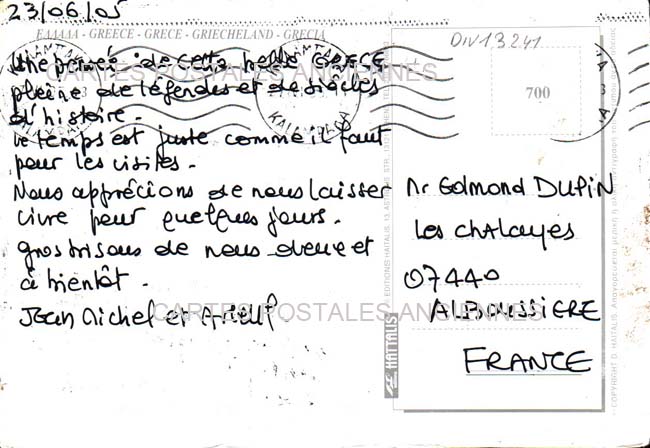 23/06/05
ΕΛΛΑΔΑ - GREECE - GRECE - GRIECHELAND - GRECIA
Une pensée de cette belle GRECE
pleine de légendes et de siècles
d'histoire.
Le temps est juste comme il faut
pour les visites.
Nous apprécions de nous laisser
vivre pour quelques jours.
Gros bisous de nous deux et
à bientôt.
Jean Michel et
DIV13241
700
Mr Edmond DUPIN
Les CHALAYES
07440
ALBOUSSIERE
FRANCE
HAITALIS
CARTES POSTALES ANCIENNES
CARTES POSTALES ANCIENNES